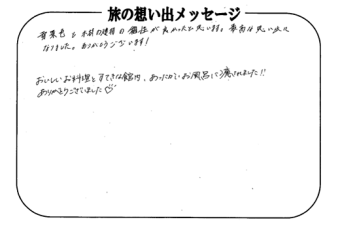 旅の想い出メッセージ
音景色と木材の建物の相性が良かったと思います。最高な思い出に
なりました。ありがとうございます!
おいしいお料理とすてきな館内、あったかいお風呂に癒されました!!
ありがとうございました♡